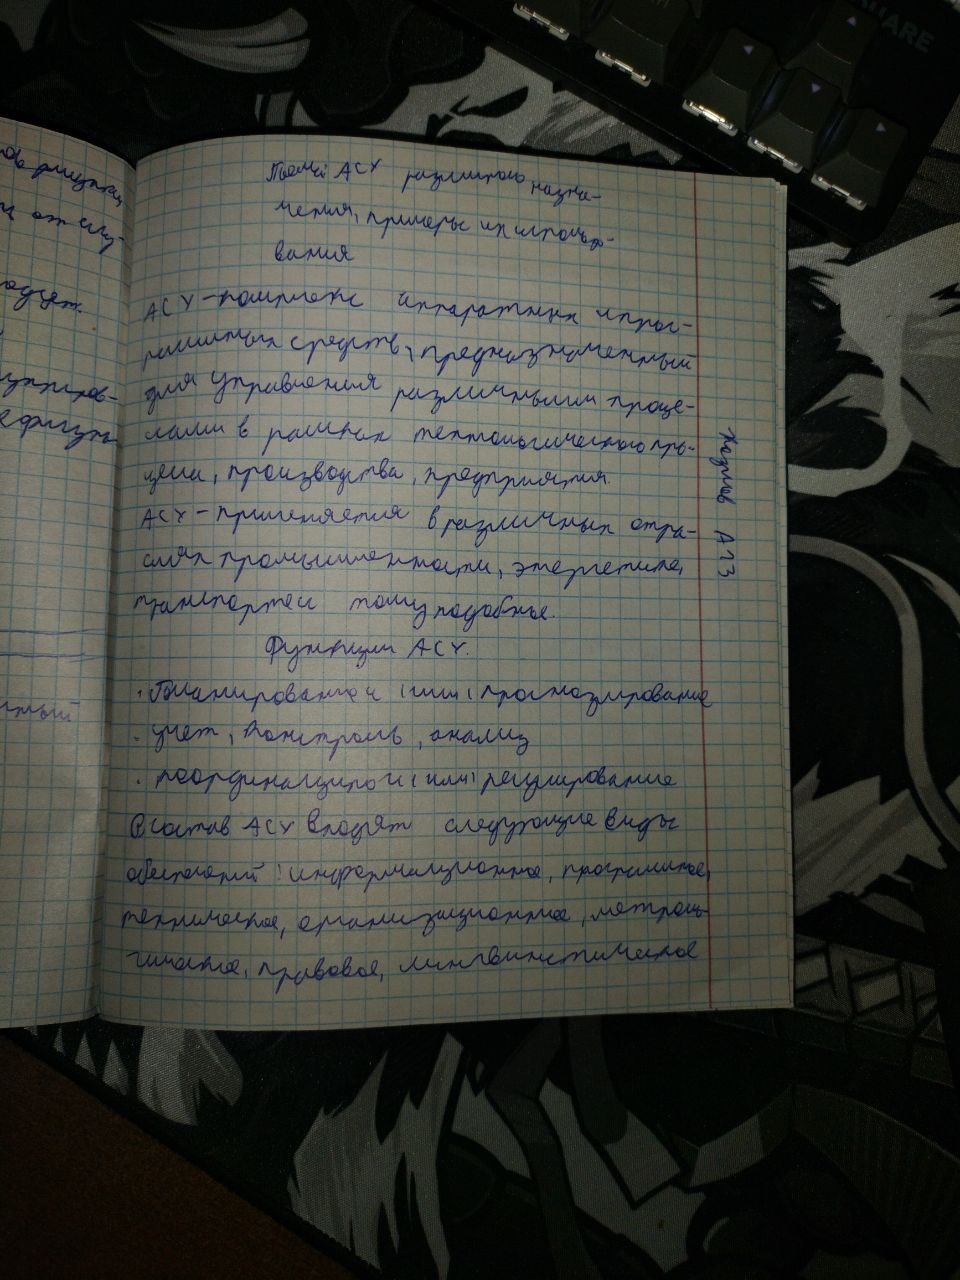 Тема: АСУ различного назна-
чения, примеры их использо-
вания
АСУ - комплекс аппаратных и прог-
раммных средств, предназначенный
для управления различными проце-
ссами в рамках технологического про-
цесса, производства, предприятия.
АСУ - применяется в различных отра-
слях промышленности, энергетике,
транспорте и тому подобные.
Функции АСУ.
· Планирование и (или) прогнозирование
· учет, контроль, анализ
· координацию и (или) регулирование
В состав АСУ входят следующие виды
обеспечений: информационное, программное,
техническое, организационное, метроло-
гическое, правовое, лингвистическое
А13
от
ARE